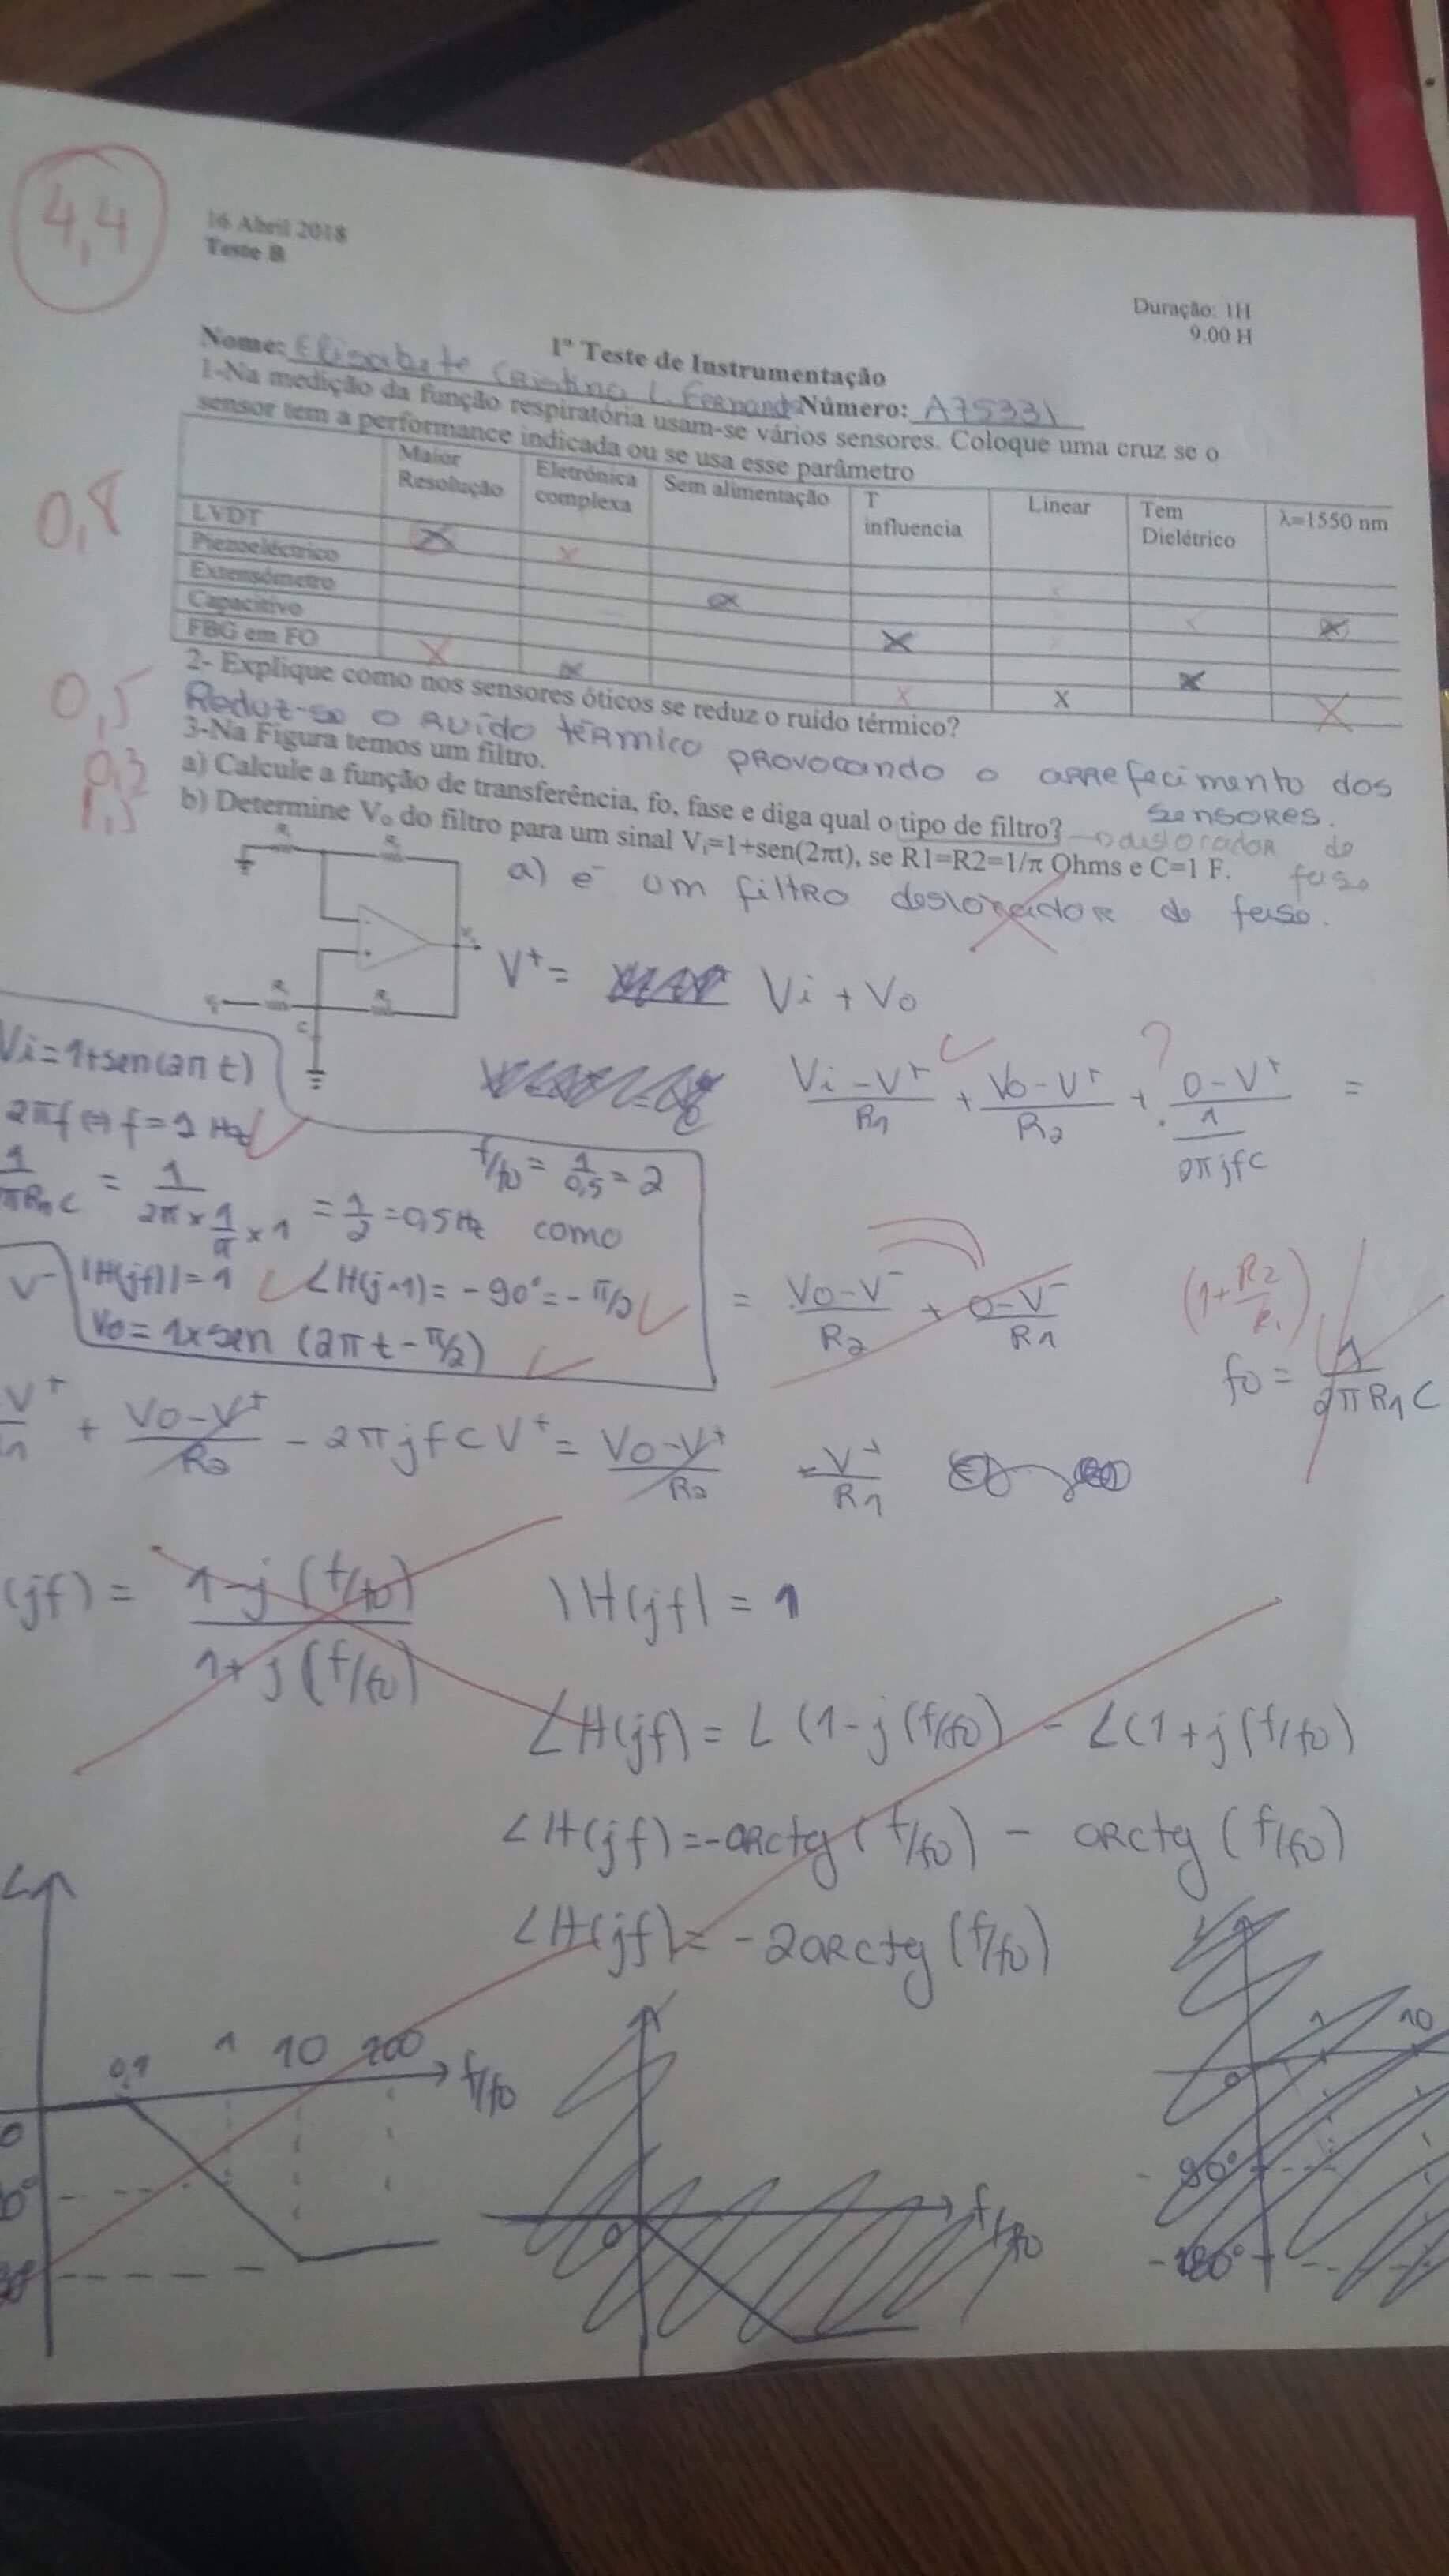 4,4
16 Abril 2018
Teste B
Duração: 1H
9.00 H
1º Teste de Instrumentação
Nome: Elisabete Cristina L. Fernandes Número: A75331
1-Na medição da função respiratória usam-se vários sensores. Coloque uma cruz se o
sensor tem a performance indicada ou se usa esse parâmetro
Maior Resolução Eletrónica complexa Sem alimentação T influencia Linear Tem Dielétrico λ=1550 nm
0,8
LVDT X
Piezoeléctrico x
Extensómetro x x
Capacitivo X
FBG em FO X x x X x X
0,5
2- Explique como nos sensores óticos se reduz o ruído térmico?
Reduz-se o ruído térmico provocando o arrefecimento dos
sensores.
3-Na Figura temos um filtro.
0,3
a) Calcule a função de transferência, fo, fase e diga qual o tipo de filtro? deslocador de
fase
1,5
b) Determine Vo do filtro para um sinal Vi=1+sen(2πt), se R1=R2=1/π Ohms e C=1 F.
a) é um filtro deslocador de fase.
V+ = Vi + Vo
C
Vi=1+sen(2πt)
Vi-V+/R1 + Vo-V+/R2 + 0-V+/(1/2πjfC) =
?
2πf ⇔ f=1 Hz
f/fo = 1/0,5 = 2
1/πR1C = 1/(2π×1/π×1) = 1/2 = 0,5 Hz como
V- |H(jf)|=1 ∠H(j·1)= -90° = -π/2
= Vo-V-/R2 + 0-V-/R1
(1+R2/R1)
Vo = 1×sen (2πt-π/2)
fo = 1/2πR1C
V+ + Vo-V+/R2 - 2πjfCV+ = Vo-V+/R2 -V+/R1
(jf) = 1-j(f/fo)/1+j(f/fo) |H(jf)| = 1
∠H(jf) = ∠(1-j(f/fo) - ∠(1+j(f/fo)
∠H(jf) = -arctg(f/fo) - arctg(f/fo)
∠H(jf) = -2arctg(f/fo)
0,1 1 10 100 f/fo
0
0 f/fo
1 10
0
-90°
-180°